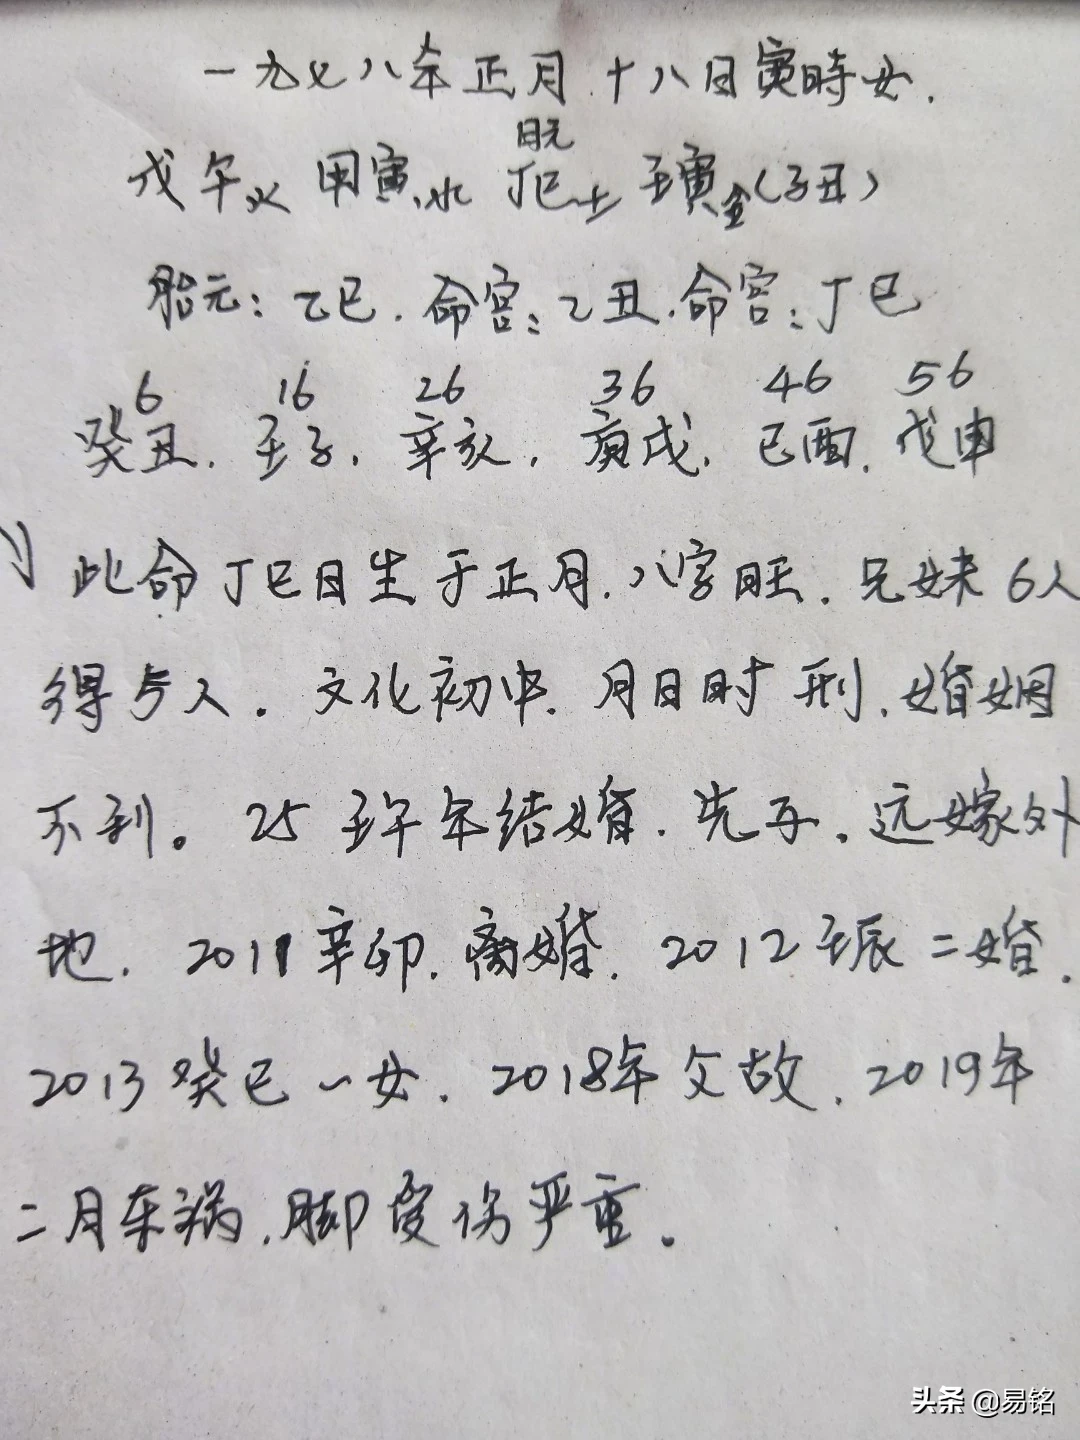 一九七八年正月十八日寅時女.
日元
戊午火 甲寅水 丁巳土 壬寅金(子丑)
胎元:乙巳.命宫:乙丑.命宫:丁巳
6 16 26 36 46 56
癸丑.壬子.辛亥.庚戌.己酉.戊申
此命丁巳日生于正月.八字旺.兄妹6人
得5人.文化初中.月日时刑.婚姻
不利。25壬午年结婚.先子.远嫁外
地.2011辛卯.离婚.2012壬辰二婚.
2013癸巳一女.2018年父故.2019年
二月车祸.脚受伤严重.
头条 @易铭